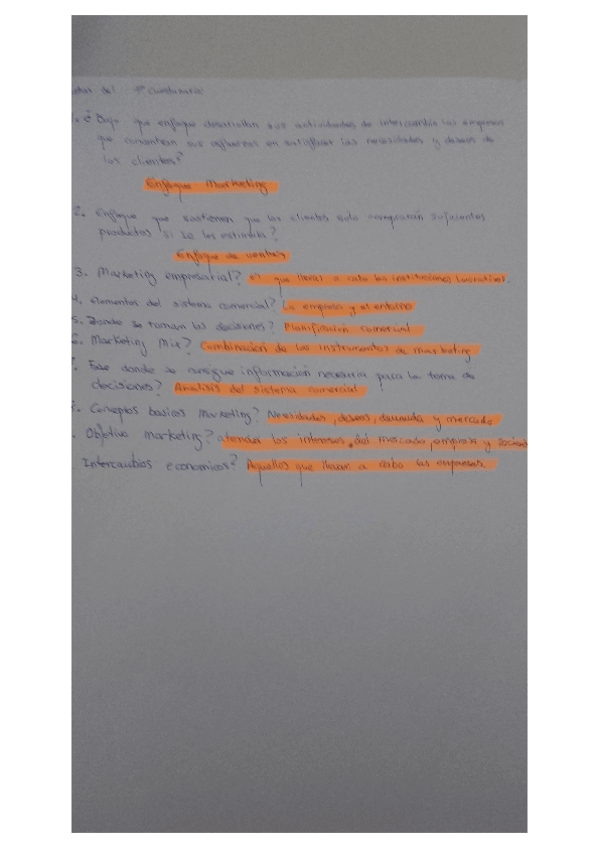 del 1º Cuestionario
1. ¿Bajo que enfoque desarrollan sus actividades de intercambio las empresas
que concentran sus esfuerzos en satisfacer las necesidades y deseos de
los clientes?
Enfoque Marketing
2. Enfoque que sostienen que los clientes solo compraran suficientes
productos si se les estimula?
Enfoque de ventas
3. Marketing empresarial? el que llevas a cabo las instituciones lucrativas.
4. Elementos del sistema comercial? La empresa y el entorno
5. Donde se toman las decisiones? Planificación comercial
6. Marketing Mix? Combinación de los instrumentos de marketing
7. Fase donde se consigue información necesaria para la toma de
decisiones? Analisis del sistema comercial
8. Conceptos basicos Marketing? Necesidades, deseos, demanda y mercado
. Objetivo marketing? atender los intereses, del mercado, empresas y
Intercambios economicos? Aquellos que llevan a cabo las empresas.